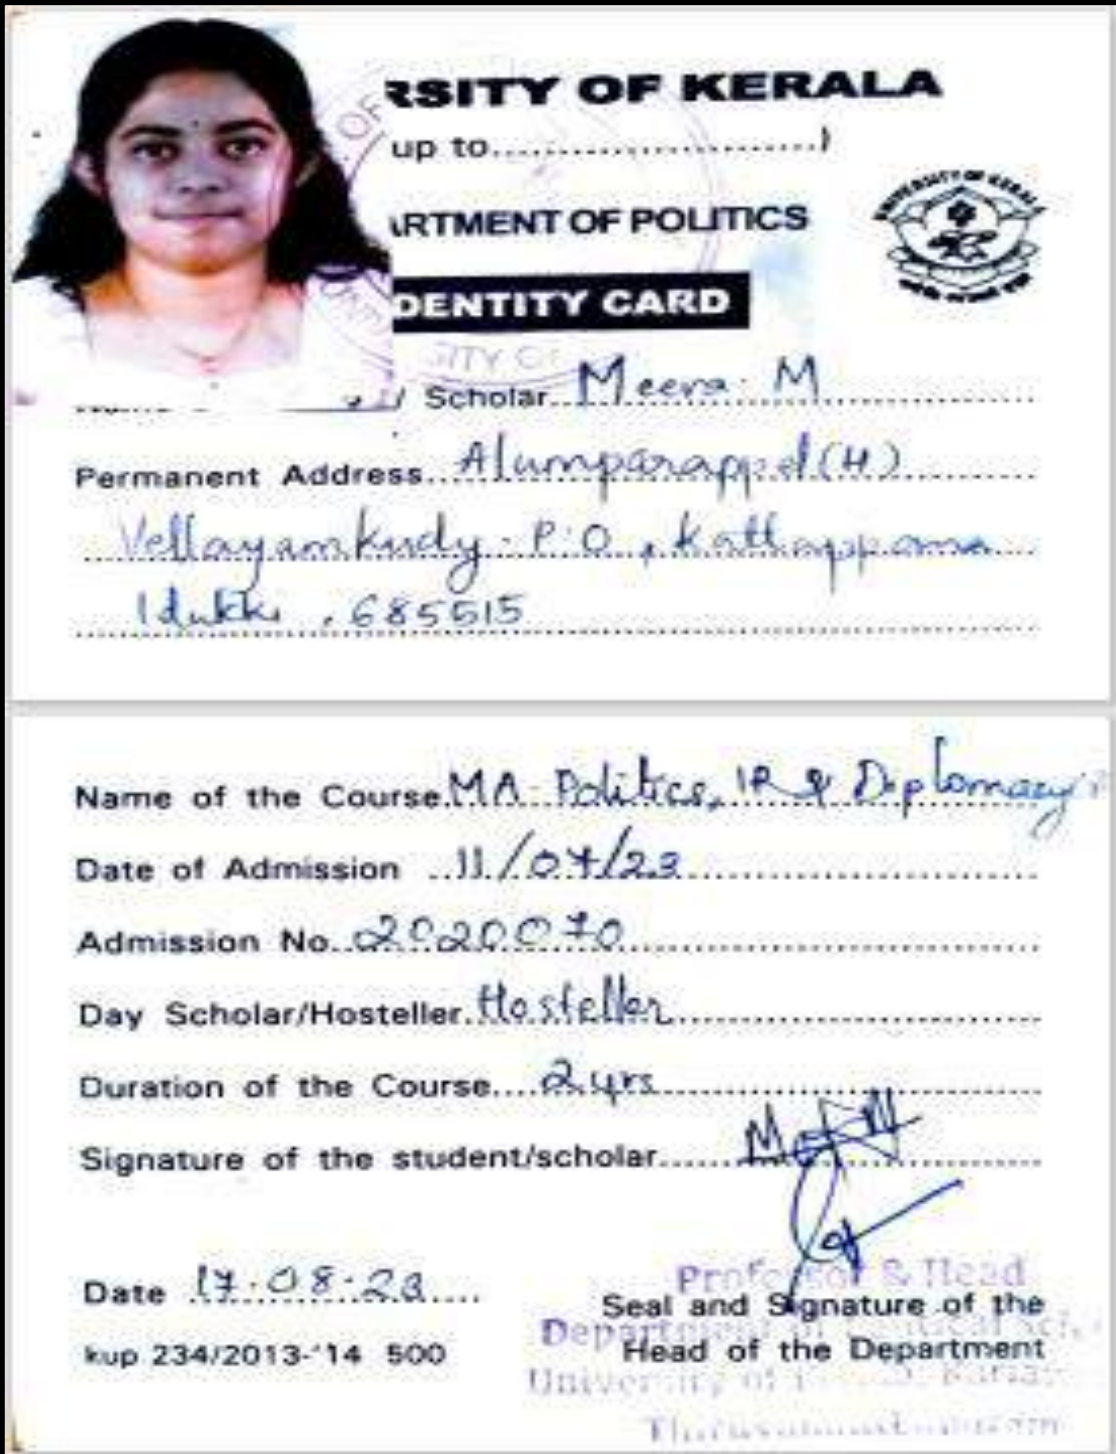 RSITY OF KERALA
up to....................)
ARTMENT OF POLITICS
DENTITY CARD
UNIVERSITY OF KERALA
/ Scholar Meera. M
Permanent Address Alumparappel (H)
Vellayamkudy. P.O, Kattappana
Idukki, 685515
Name of the Course MA Politics, IR & Diplomacy
Date of Admission 11/07/23
Admission No. 2020070
Day Scholar/Hosteller Hosteller
Duration of the Course 2 yrs
Signature of the student/scholar
Date 17.08.23
Professor & Head
Seal and Signature of the
Department of
Head of the Department
University of
kup 234/2013-'14 500